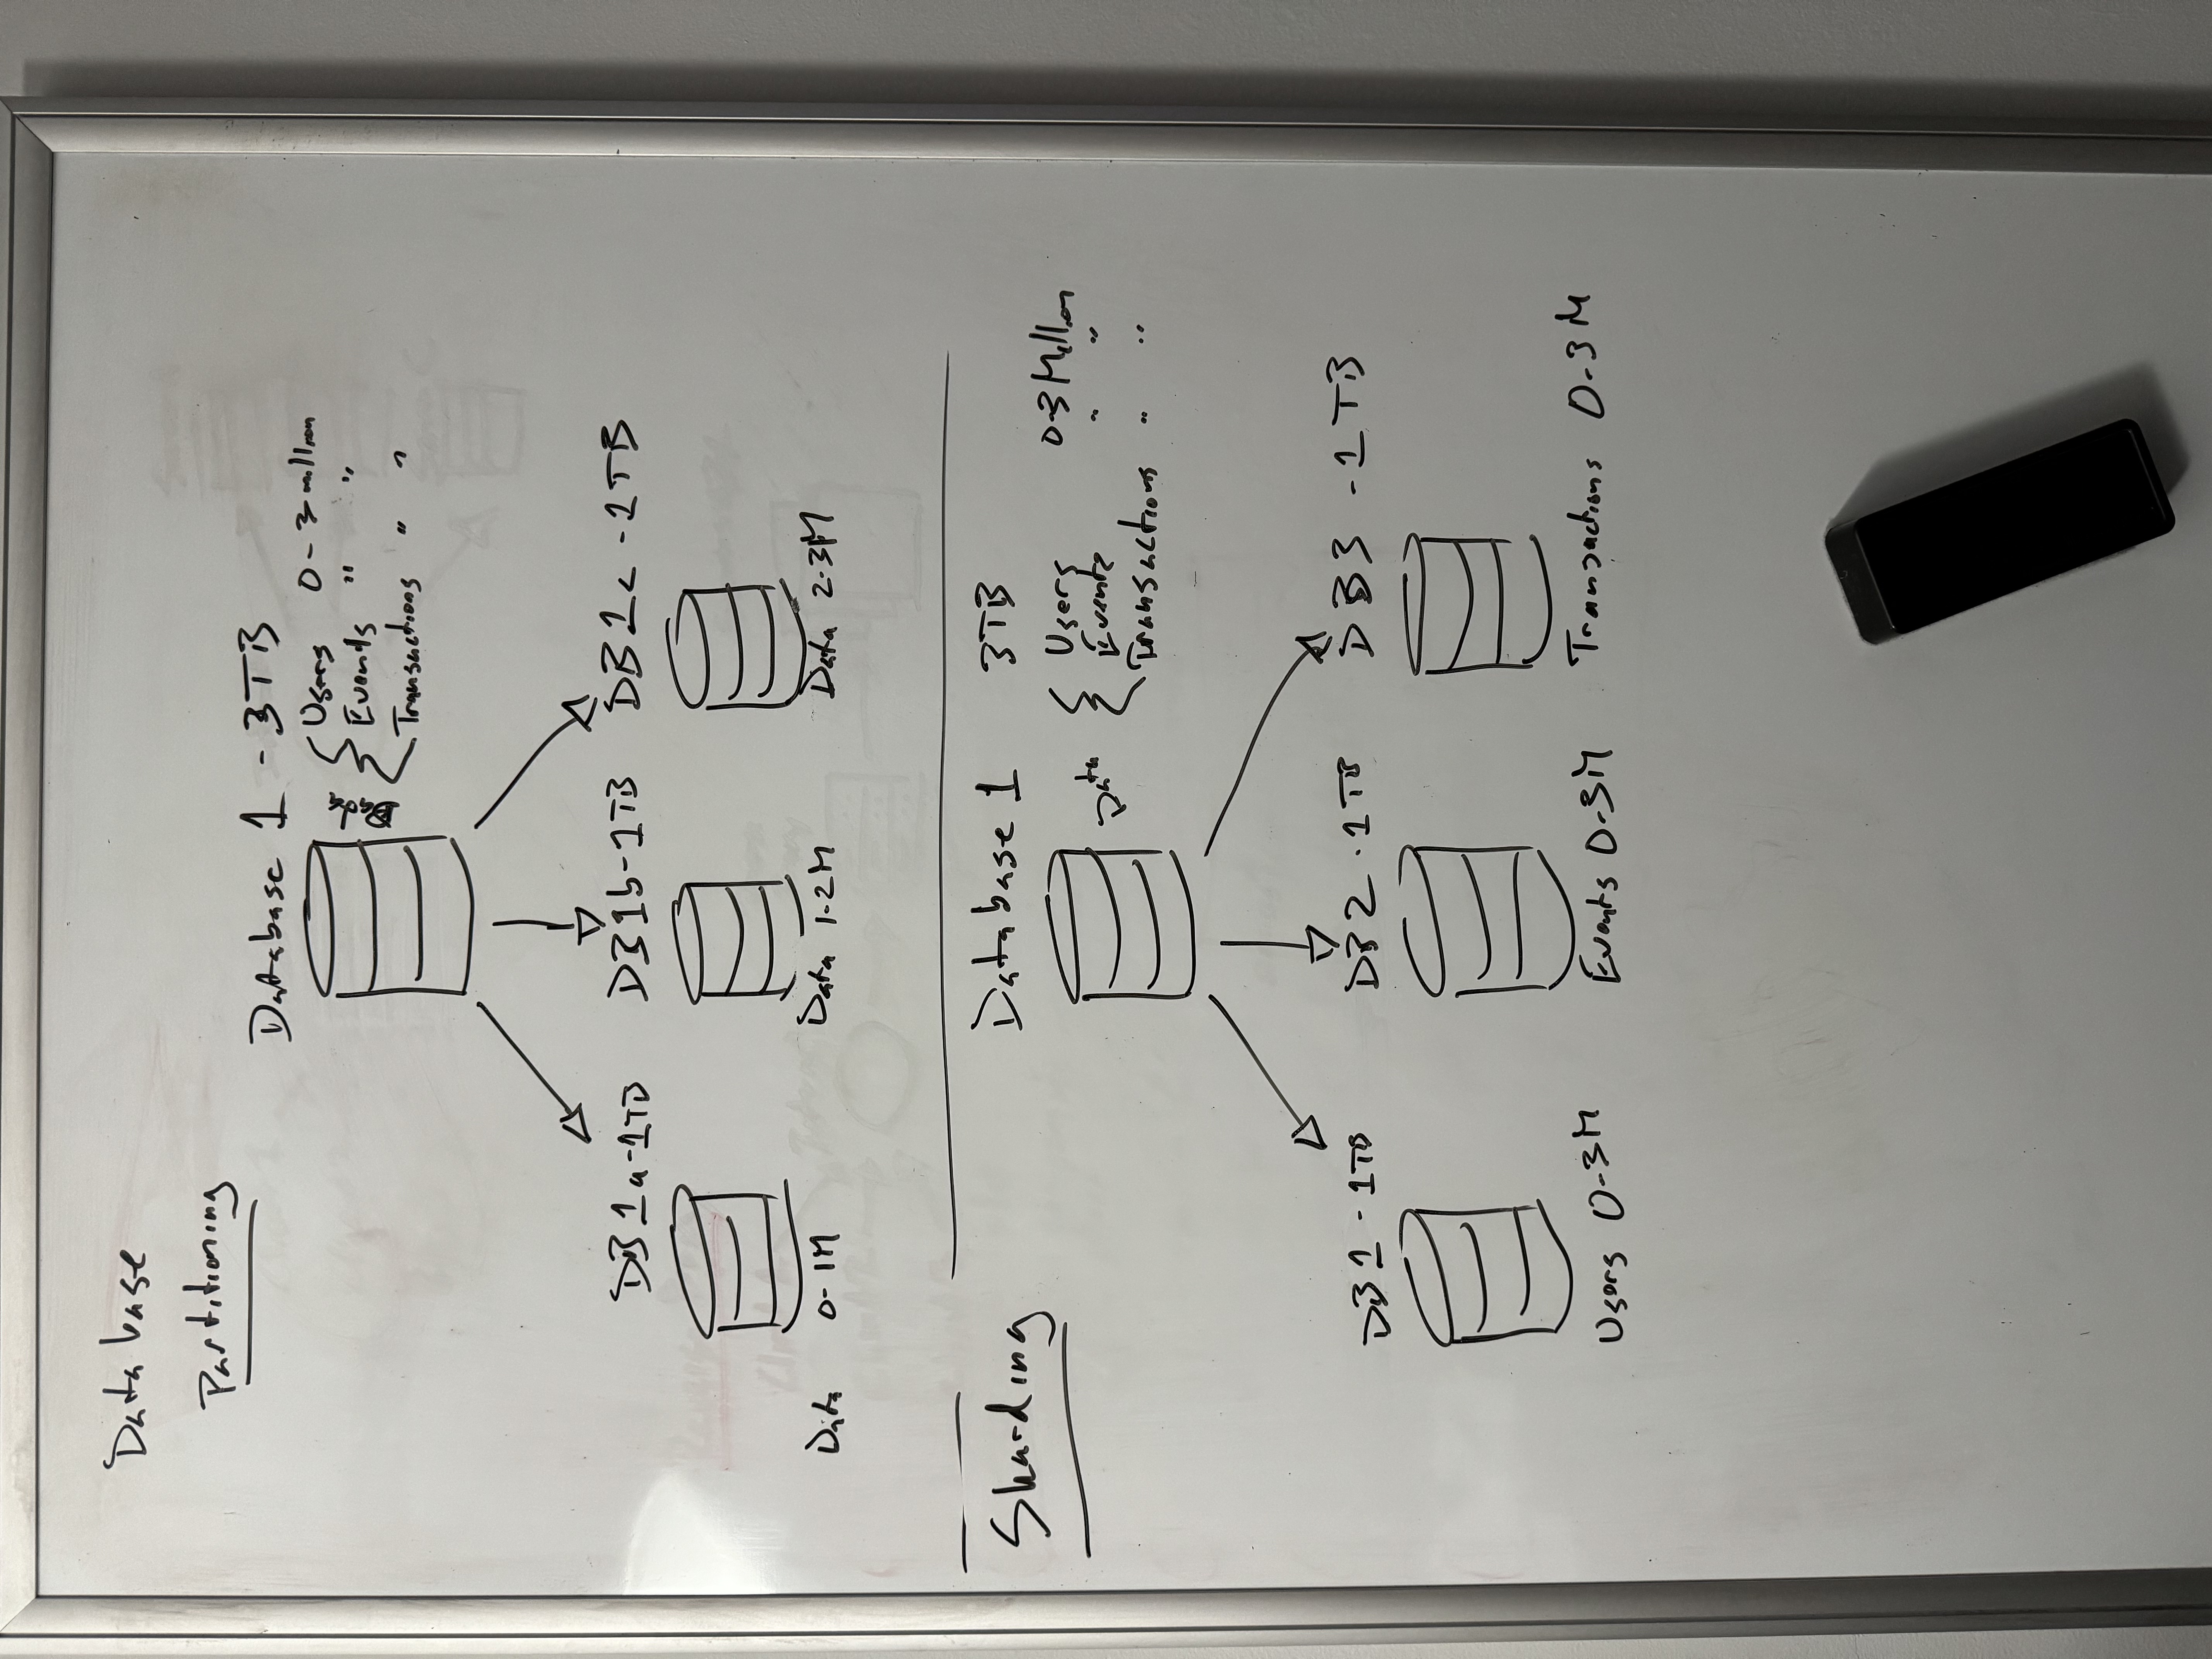 Database
Partitioning
Database 1 - 3TB
Data
Users 0 - 3 million
Events " "
Transactions " "
DB1a-1TB DB1b-1TB DB1c -1TB
Data 0-1M Data 1-2M Data 2-3M
Sharding
Database 1 3TB
Data
Users 0-3 Million
Events " "
Transactions " "
DB1 - 1TB DB2 - 1TB DB3 - 1TB
Users 0-3M Events 0-3M Transactions 0-3M